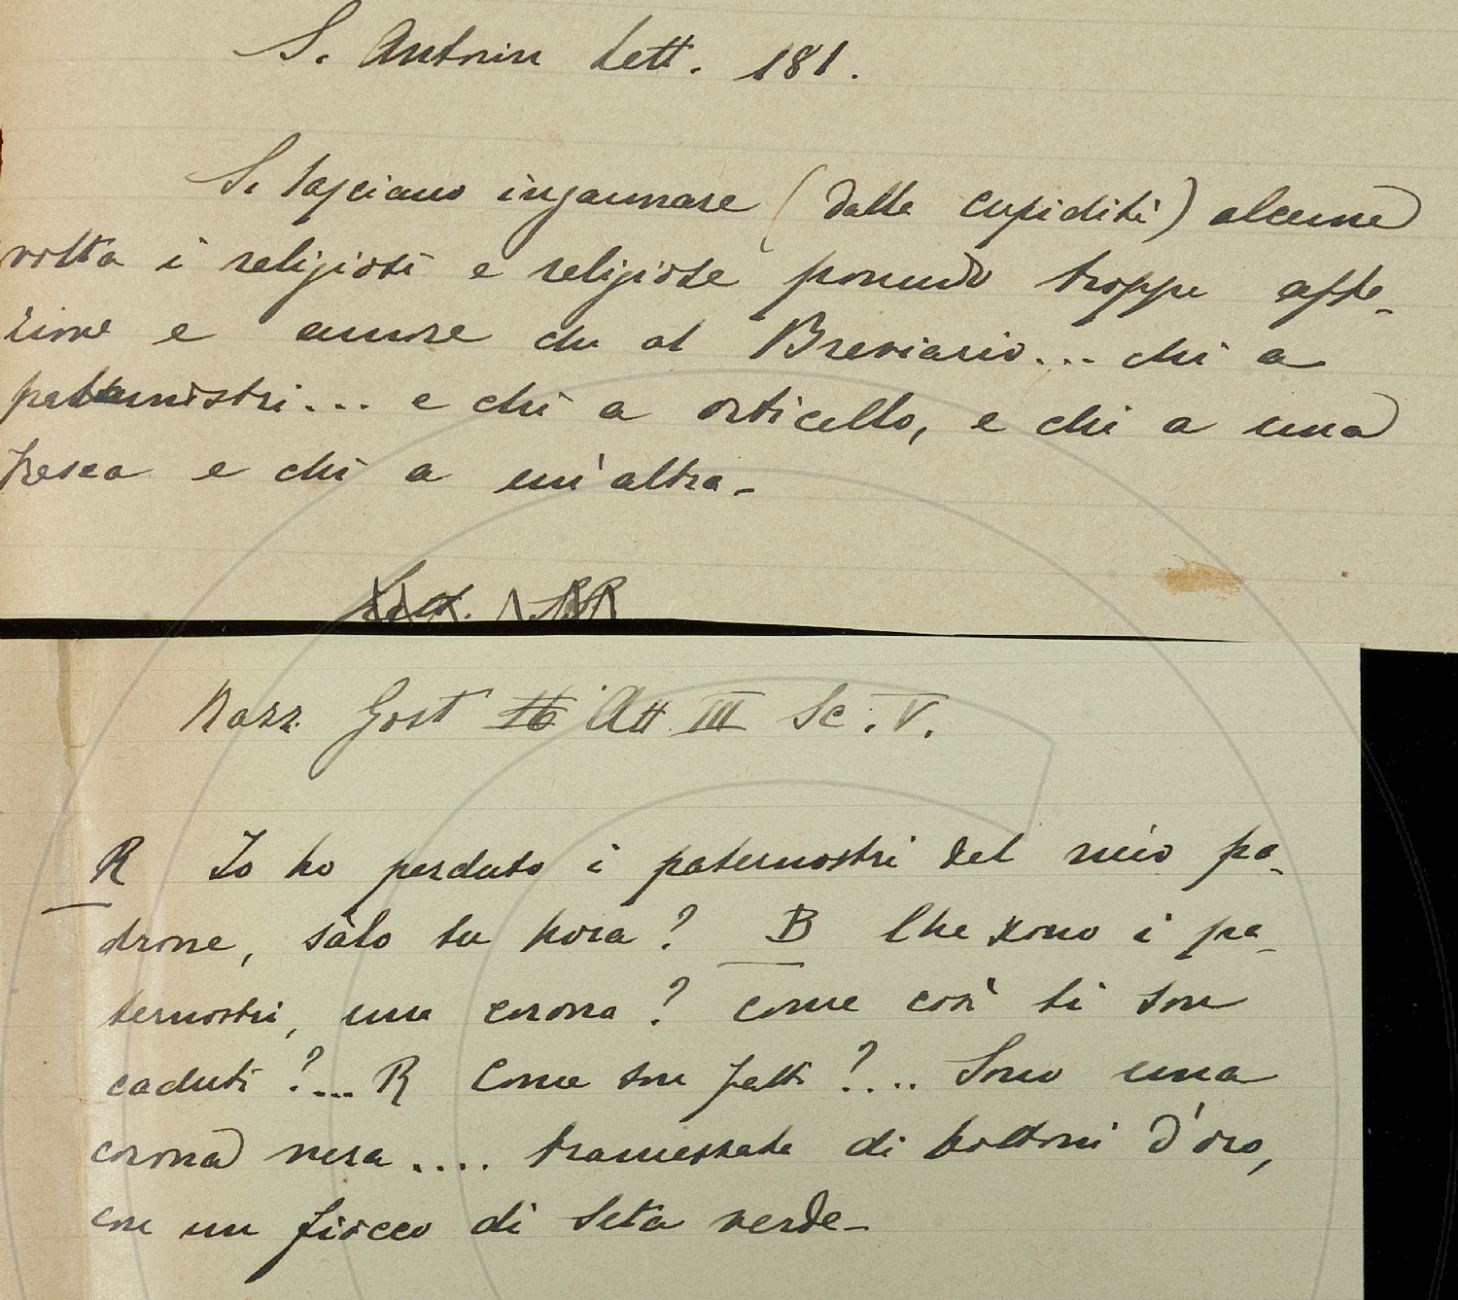 S. Antonin Lett. 181.
Si lasciano ingannare (dalle cupidità) alcuna
volta i religiosi e religiose ponendo troppe affe-
zione e amore chi al Breviario... chi a
paternostri... e chi a orticello, e chi a una
tresca e chi a un'altra-
Razz. Gost Att III Sc. V.
R Io ho perduto i paternostri del mio pa-
drone, sàlo tu hora? B Che sono i pa-
ternostri, una corona? come così ti son
caduti?... R Come son fatti?... Sono una
corona nera.... tramezzata di bottoni d'oro,
con un fiocco di seta verde-